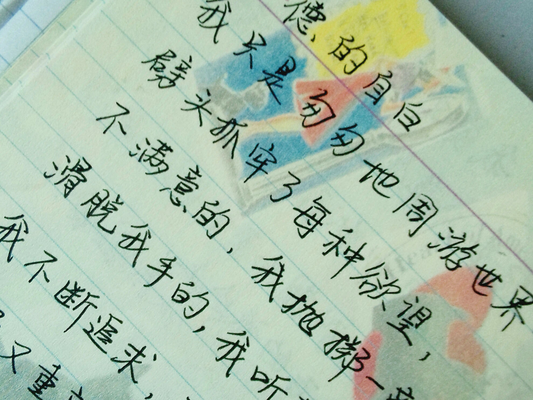 德的自白
我只是匆匆地周游世界
劈头抓牢了每种欲望,
不满意的,我抛掷一
滑脱我手的,我听
我不断追求,
又重